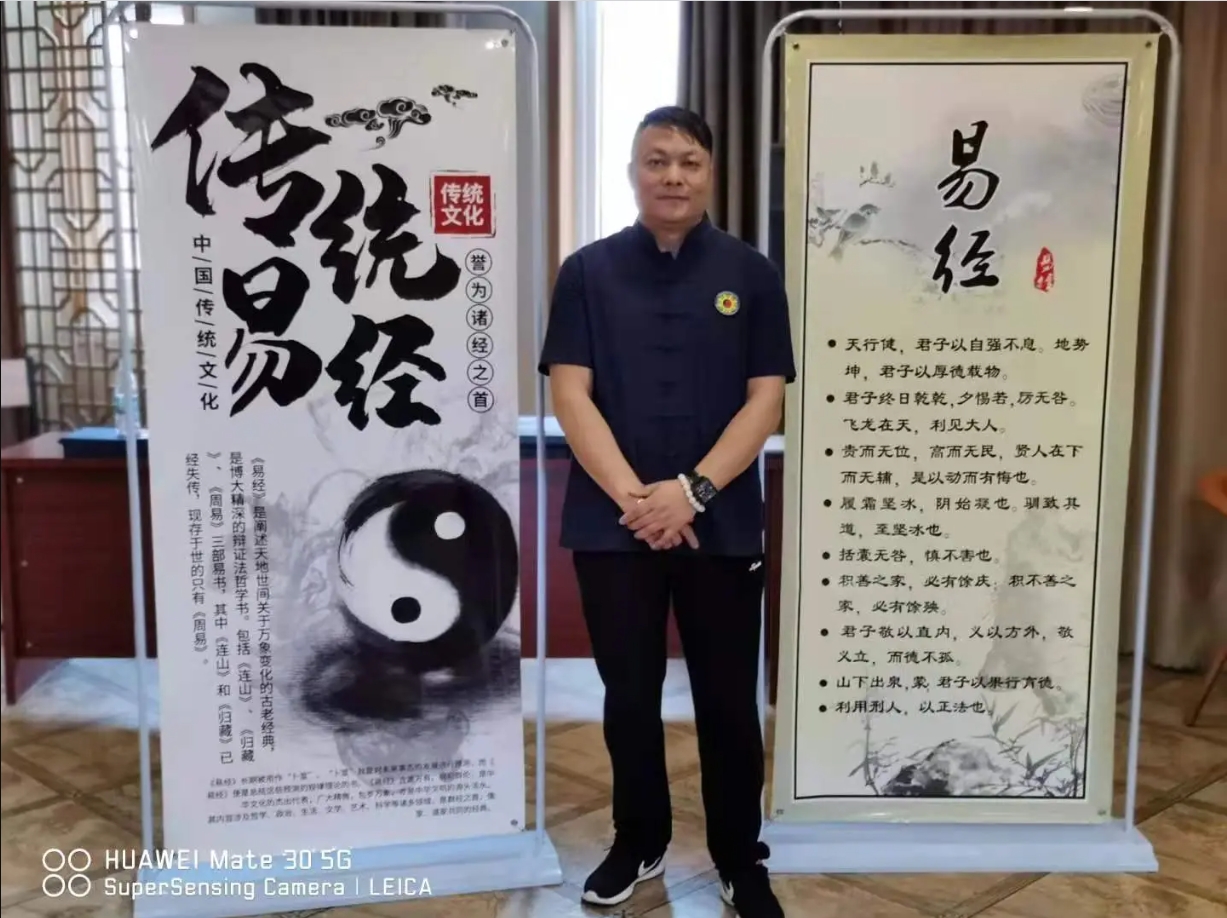 传统
易经
传统
文化
中国传统文化
誉为诸经之首
《易经》是阐述天地世间关于万象变化的古老经典，
是博大精深的辩证法哲学书。包括《连山》、《归藏
》、《周易》三部易书，其中《连山》和《归藏》已
经失传，现存于世的只有《周易》。
易经
天行健，君子以自强不息。地势
坤，君子以厚德载物。
君子终日乾乾,夕惕若,厉无咎。
飞龙在天，利见大人。
贵而无位，高而无民，贤人在下
而无辅，是以动而有悔也。
履霜坚冰，阴始凝也。驯致其
道，至坚冰也。
括囊无咎，慎不害也。
积善之家，必有馀庆；积不善之
家，必有馀殃。
君子敬以直内，义以方外，敬
义立，而德不孤。
山下出泉,蒙.君子以果行育德。
利用刑人，以正法也。
HUAWEI Mate 30 5G
SuperSensing Camera | LEICA